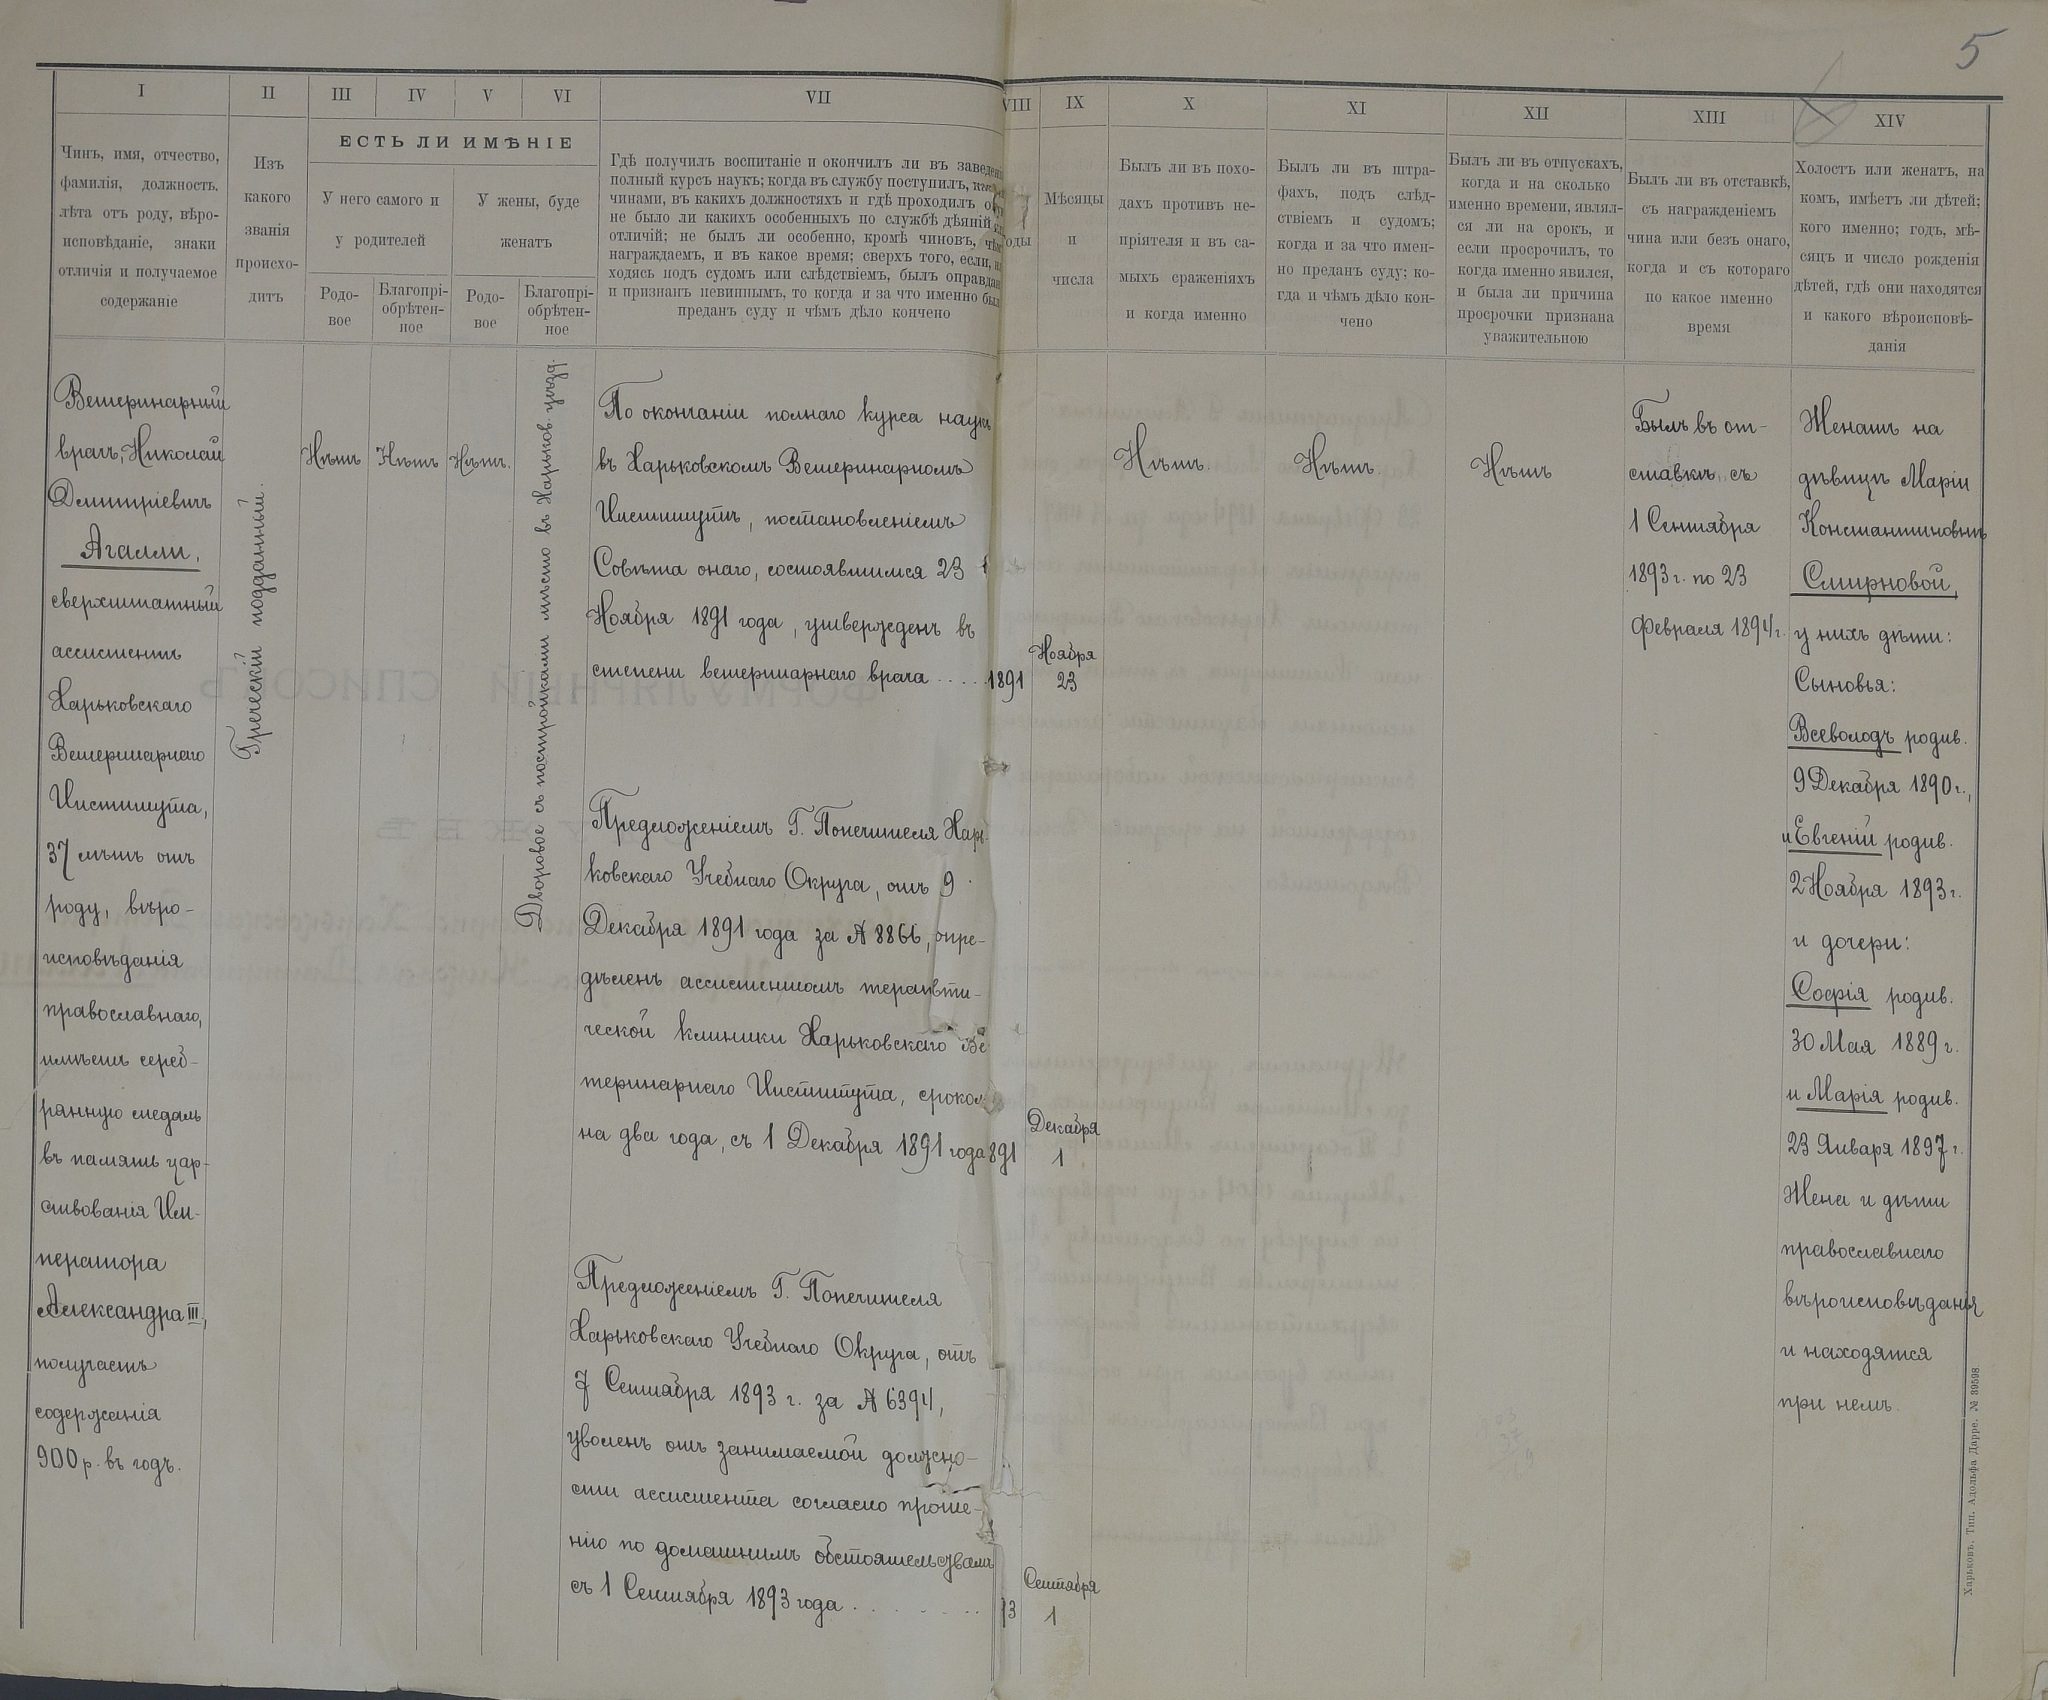 5
I
II
III
IV
V
VI
VII
VIII
IX
X
XI
XII
XIII
XIV
Чинъ, имя, отчество,
фамилія, должность,
лѣта отъ роду, вѣро-
исповѣданіе, знаки
отличія и получаемое
содержаніе
Изъ
какого
званія
происхо-
дитъ
ЕСТЬ ЛИ ИМѢНІЕ
У него самого и
у родителей
У жены, буде
женатъ
Родо-
вое
Благопрі-
обрѣтен-
ное
Родо-
вое
Благопрі-
обрѣтен-
ное
Гдѣ получилъ воспитаніе и окончилъ ли въ заведен
полный курсъ наукъ; когда въ службу поступилъ,
чинами, въ какихъ должностяхъ и гдѣ проходилъ
не было ли какихъ особенныхъ по службѣ дѣяній
отличій; не былъ ли особенно, кромѣ чиновъ, чѣмъ
награждаемъ, и въ какое время; сверхъ того, если, на-
ходясь подъ судомъ или слѣдствіемъ, былъ оправдан
и признанъ невиннымъ, то когда и за что именно былъ
преданъ суду и чѣмъ дѣло кончено
оды
Мѣсяцы
и
числа
Былъ ли въ похо-
дахъ противъ не-
пріятеля и въ са-
мыхъ сраженіяхъ
и когда именно
Былъ ли въ штра-
фахъ, подъ слѣд-
ствіемъ и судомъ;
когда и за что имен-
но преданъ суду; ко-
гда и чѣмъ дѣло кон-
чено
Былъ ли въ отпускахъ,
когда и на сколько
именно времени, являл-
ся ли на срокъ, и
если просрочилъ, то
когда именно явился,
и была ли причина
просрочки признана
уважительною
Былъ ли въ отставкѣ,
съ награжденіемъ
чина или безъ онаго,
когда и съ котораго
по какое именно
время
Холостъ или женатъ, на
комъ, имѣетъ ли дѣтей;
кого именно; годъ, мѣ-
сяцъ и число рожденія
дѣтей, гдѣ они находятся
и какого вѣроисповѣ-
данія
Ветеринарный
врачъ, Николай
Дмитріевичъ
Агалли,
сверхштатный
ассистентъ
Харьковскаго
Ветеринарнаго
Института,
37 лѣтъ отъ
роду, вѣро-
исповѣданія
православнаго,
имѣетъ сереб-
рянную медаль
въ память цар-
ствованія Им-
ператора
Александра III,
получаетъ
содержанія
900 р. въ годъ.
Греческій подданный.
Нѣтъ
Нѣтъ
Нѣтъ.
Дворовое съ постройками мѣсто въ Харьков. уѣздѣ.
По окончаніи полнаго курса наукъ
въ Харьковскомъ Ветеринарномъ
Институтѣ, постановленіемъ
Совѣта онаго, состоявшимся 23
Ноября 1891 года, утвержденъ въ
степени ветеринарнаго врача . . . . .
1891
Ноября
23
Предложеніемъ Г. Попечителя Харь-
ковскаго Учебнаго Округа, отъ 9
Декабря 1891 года за № 8866, опре-
дѣленъ ассистентомъ терапевти-
ческой клиники Харьковскаго Ве
теринарнаго Института, срокомъ
на два года, съ 1 Декабря 1891 года
891
Декабря
1
Предложеніемъ Г. Попечителя
Харьковскаго Учебнаго Округа, отъ
7 Сентября 1893 г. за № 6394,
уволенъ отъ занимаемой должно-
сти ассистента согласно проше-
нію по домашнимъ обстоятельствамъ
съ 1 Сентября 1893 года . . . . . . . .
93
Сентября
1
Нѣтъ.
Нѣтъ.
Нѣтъ
Былъ въ от-
ставкѣ съ
1 Сентября
1893 г. по 23
Февраля 1894 г.
Женатъ на
дѣвицѣ Маріи
Константиновнѣ
Смирновой,
у нихъ дѣти:
Сыновья:
Всеволодъ родив.
9 Декабря 1890 г.,
и Евгеній родив.
2 Ноября 1893 г.
и дочери:
Софія родив.
30 Мая 1889 г.
и Марія родив.
23 Января 1897 г.
Жена и дѣти
православнаго
вѣроисповѣданія
и находятся
при немъ.
Харьковъ. Тип. Адольфа Дарре. № 39598.